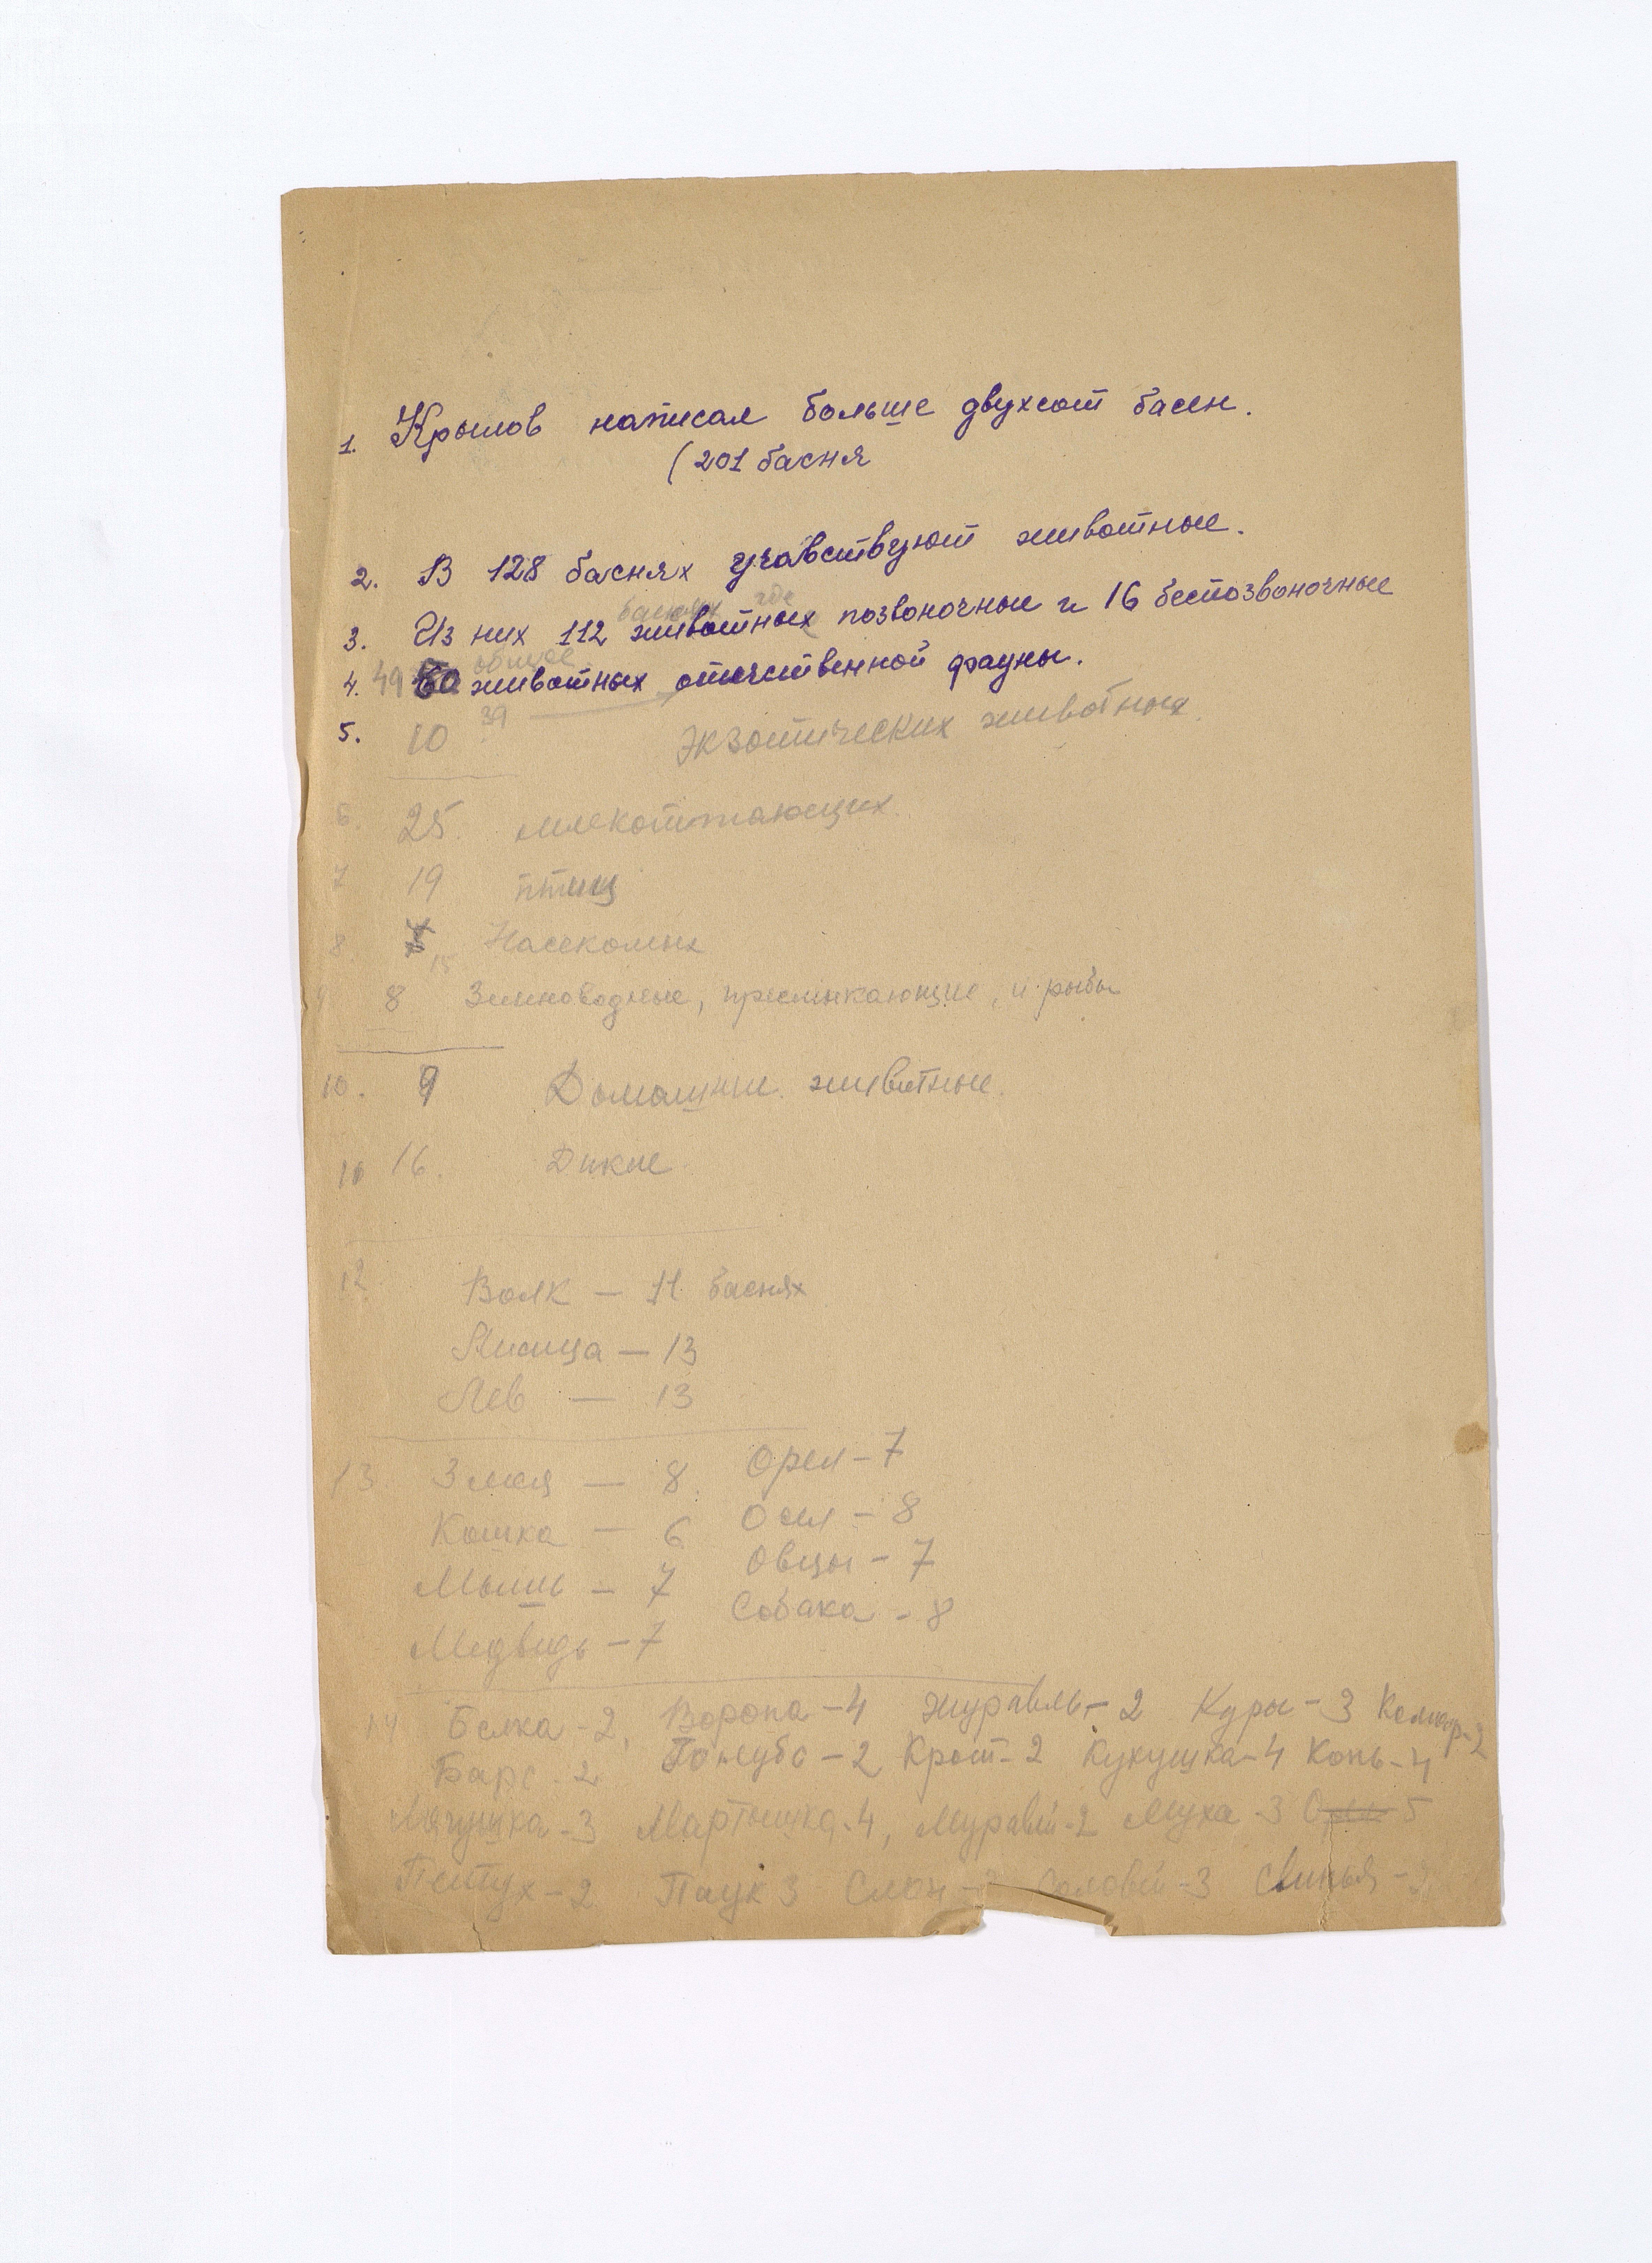 1. Крылов написал больше двухсот басен.
(201 басня
2. В 128 баснях учавствуют животные.
баснях где
3. Из них 112 животных позвоночные и 16 беспозвоночные
общее
4. 49 50 животных отечественной фауны.
39
5. 10 — экзотических животных.
6. 25. млекопитающих.
7 19 птиц
8. Насекомых
15
9 8 Земноводные, пресмыкающие, и рыбы
10. 9 Домашние животные.
11 16. Дикие.
12 Волк — 11 баснях
Лисица — 13
Лев — 13
13 Змея — 8. Орел — 7
Кошка — 6 Осел — 8
Мышь — 7 Овцы — 7
Медведь — 7 Собака — 8
14 Белка - 2, Ворона - 4 Журавль - 2 Куры - 3 Комар - 2
Барс - 2 Голубь - 2 Крот - 2 Кукушка - 4 Конь - 4
Лягушка - 3 Мартышка - 4, Муравей - 2 Муха - 3 Орел 5
Петух - 2 Паук 3 Слон - Соловей - 3 Свинья - 2